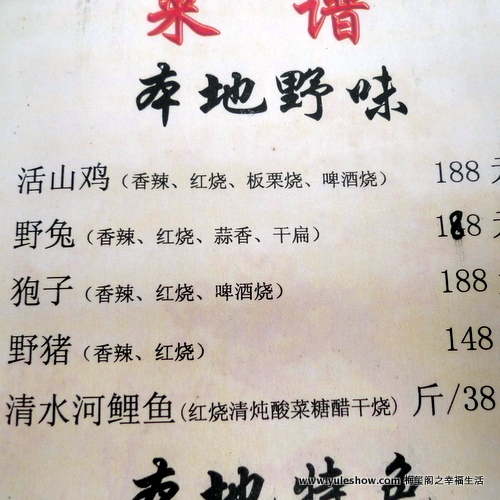 菜 谱
本地野味
活山鸡（香辣、红烧、板栗烧、啤酒烧） 188 元
野兔（香辣、红烧、蒜香、干扁） 188 元
狍子（香辣、红烧、啤酒烧） 188
野猪（香辣、红烧） 148
清水河鲤鱼(红烧清炖酸菜糖醋干烧) 斤/38
本地特色
www.yuleshow.com 梅玺阁之幸福生活